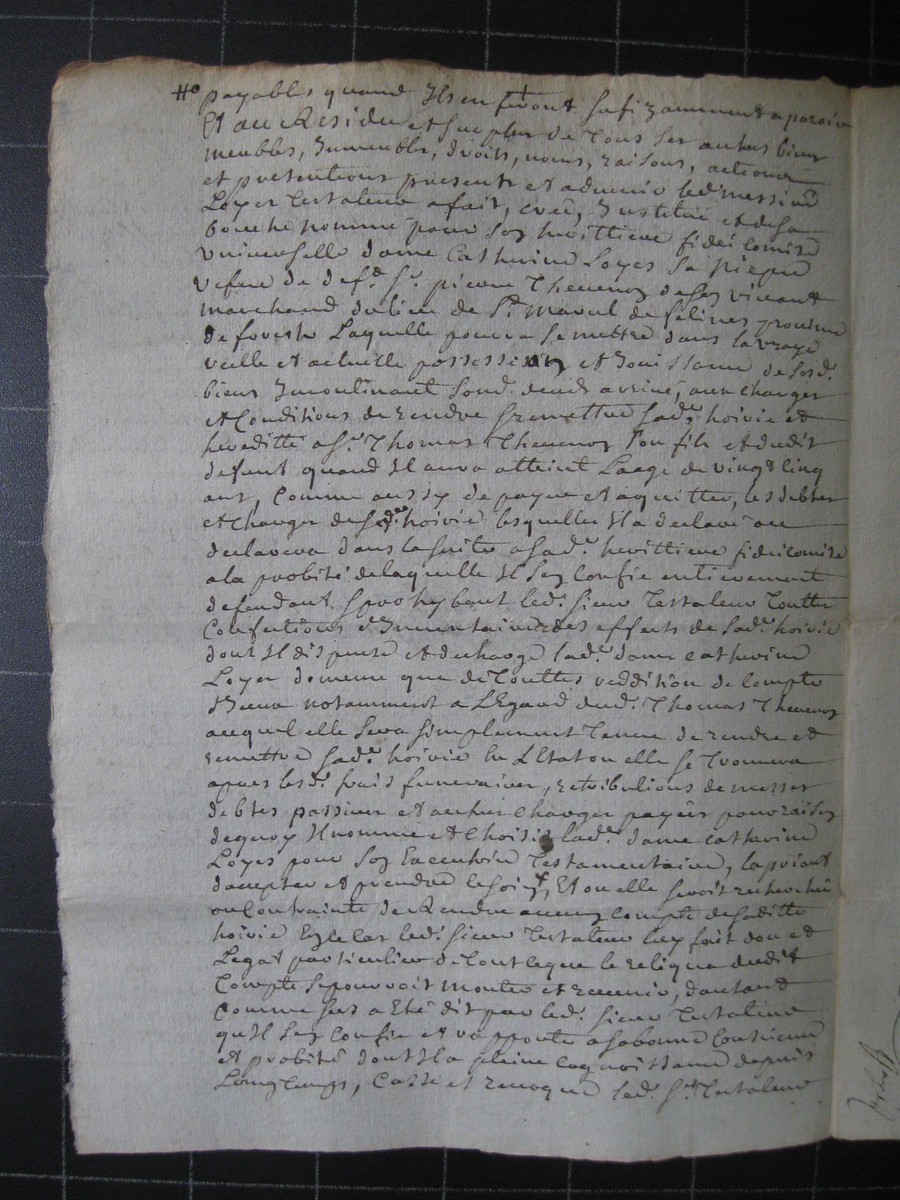 payables quand Ils en feront sufizamment aparoir
Et au Residu et surplus de Tous ses autres biens
meubles, Immeubles, droits, noms, raisons, actions
et pretentions presents et advenir led. messire
Loyes Testateur a fait, creé, Institué et de sa
bouche nommé pour son heritiere fideicomise
universelle dame Catherine Loyes sa niepce
vefve de def.t S.r pierre Thevenon de son vivant
marchand du lieu de S.t Marcel de felines province
de forests Laquelle pourra se mettre dans la vraye
reelle et actuelle possession et Jouissance de sesd.
biens Incontinant sond. deceds arrivé, aux charges
et Conditions de rendre & remettre sad.e hoirie et
heredité a S.r Thomas Thevenon son fils et dudit
defunt quand Il aura atteint Laage de vingt cinq
ans, Comme aussy de payer et aquitter, les debtes
et charges de sad.e hoirie lesquelles Il a declaré ou
declarera dans la suitte a sad.e heritiere fideicomise
a la probité de laquelle Il sen confie entierement
defendant & prohybant led. sieur Testateur Touttes
Confections d'Inventaire des effects de sad.e hoirie
dont Il dispense et decharge lad.e dame catherine
Loyes de meme que de Touttes reddition de compte
d'Icelle notamment a L'Egard dud. Thomas Thevenon
auquel elle sera simplement Tenue de rendre et
remettre sad.e hoirie en L'Etat ou elle se Trouvera
apres lesd. frais funeraires, retributions de messes
debtes passives et autres charges payées pour raison
dequoy Il nomme et choisit lad.e dame catherine
Loyes pour son Executrice Testamentaire, la priant
d'accepter et prendre le soin, Et ou elle seroit recherchée
ou Contrainte de Rendre aucun compte de saditte
hoirie En ce cas led. sieur Testateur luy fait don et
Legat particulier de Tout ce que le reliqua dudit
Compte se pourroit monter et revenir, d'autant
Comme sus a Eté dit par led. sieur Testateur
qu'Il sen confie et rapporte a sa bonne Conscience
et probité dont Il a pleine cognoissance depuis
Longtemps, Casse et revoque led. S.r Testateur